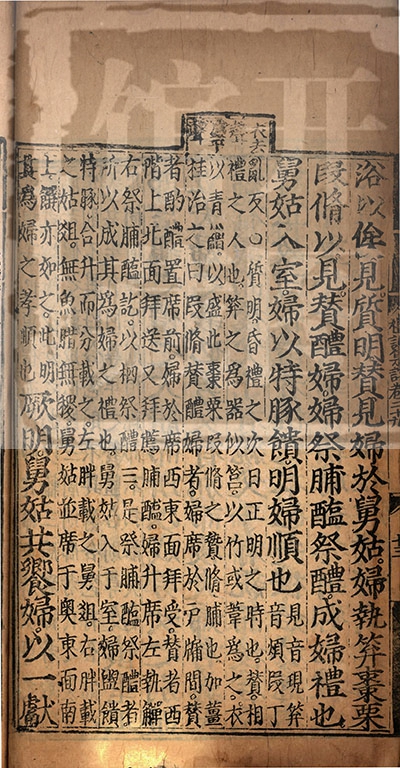 浴以俟見。質明贊見婦於舅姑。婦執笲棗栗
段脩以見。贊醴婦。婦祭脯醢祭醴。成婦禮也
舅姑入室婦以特豚饋。明婦順也
見音現笲
音煩段丁
亂反○質明昏禮之次日正明之時也。贊相
禮之人也。笲之為器似筥。以竹或葦為之。衣
以青繒。以盛此棗栗段脩之贄。脩脯也。加薑
桂治之曰段脩。贊醴婦者。婦席於戶牖間。贊
者酌醴置席前。婦於席西東面拜受。贊者西
階上北面拜送。又拜薦脯醢。婦升席。左執觶
右祭脯醢訖。以柶祭醴三。是祭脯醢祭醴者
所以成其為婦之禮也。舅姑入于室。婦盥饋
特豚。合升而分載之。左胖載之舅俎。右胖載
之姑俎。無魚腊無稷。舅姑並席于奧。東面南
上。饌亦如之。此明
其為婦之孝順也
厥明。舅姑共饗婦。以一獻
衣去
聲
盛平
聲